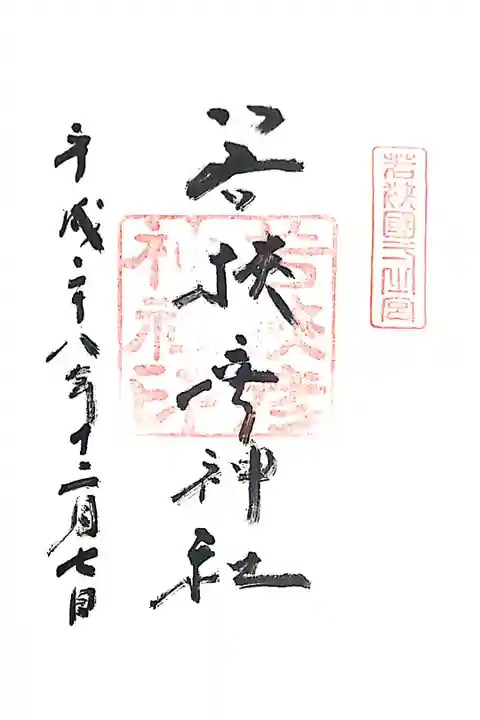 若狹國一之宮
若狭彦神社
若狹彦
神社印
平成二十八年十二月七日